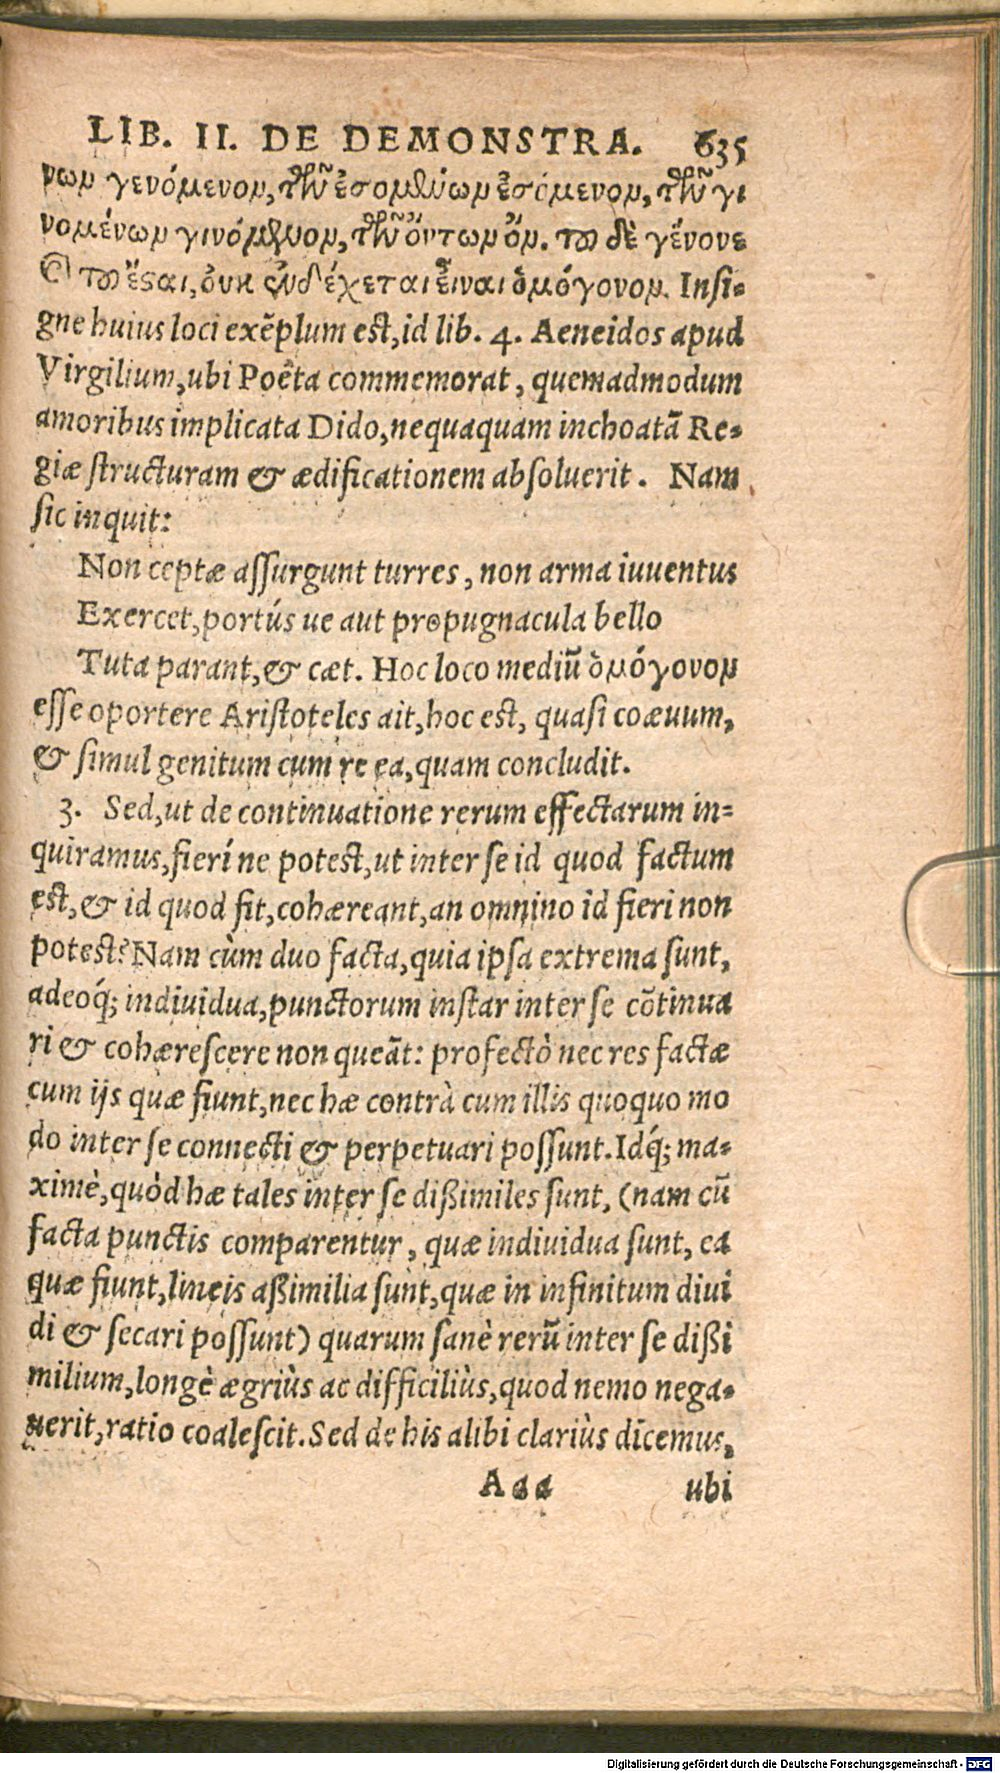 LIB. II. DE DEMONSTRA. 635
νων γενόμενον, τῶν ἐσομένων ἐσόμενον, τῶν γι
νομένων γινόμενον, τῶν ὄντων ὄν. τὸ δὲ γέγονε
καὶ τὸ ἔσται, οὐκ ἐνδέχεται εἶναι ὁμόγονον. Insi-
gne huius loci exẽplum est, id lib. 4. Aeneidos apud
Virgilium, ubi Poëta commemorat, quemadmodum
amoribus implicata Dido, nequaquam inchoatã Re-
giæ structuram & ædificationem absoluerit. Nam
sic inquit:
Non ceptæ assurgunt turres, non arma iuuentus
Exercet, portús ue aut propugnacula bello
Tuta parant, & cæt. Hoc loco mediũ ὁμόγονον
esse oportere Aristoteles ait, hoc est, quasi coæuum,
& simul genitum cum re ea, quam concludit.
3. Sed, ut de continuatione rerum effectarum in-
quiramus, fierí ne potest, ut inter se id quod factum
est, & id quod fit, cohæreant, an omnino id fieri non
potest? Nam cùm duo facta, quia ipsa extrema sunt,
adeoq́; indiuidua, punctorum instar inter se cõtinua
ri & cohærescere non queãt: profectò nec res factæ
cum ijs quæ fiunt, nec hæ contrà cum illis quoquo mo
do inter se connecti & perpetuari possunt. Idq́; ma-
ximè, quòd hæ tales inter se dißimiles sunt, (nam cũ
facta punctis comparentur, quæ indiuidua sunt, ea
quæ fiunt, lineis aßimilia sunt, quæ in infinitum diui
di & secari possunt) quarum sanè rerũ inter se dißi
milium, longè ægriùs ac difficiliùs, quod nemo nega-
uerit, ratio coalescit. Sed de his alibi clariùs dicemus,
Aaa ubi
Digitalisierung gefördert durch die Deutsche Forschungsgemeinschaft - DFG